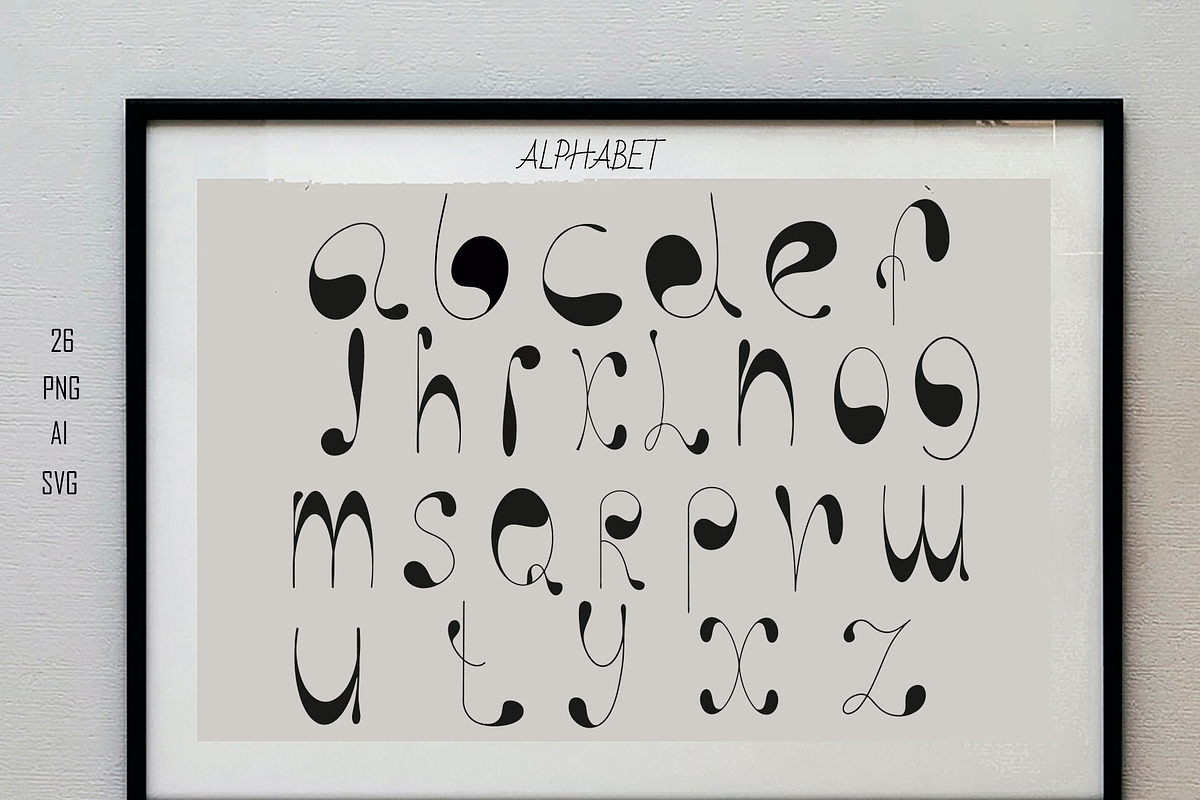 ALPHABET
a b c d e f
J h i k L n o g
m s Q R p v w
u t y x z
26
PNG
AI
SVG